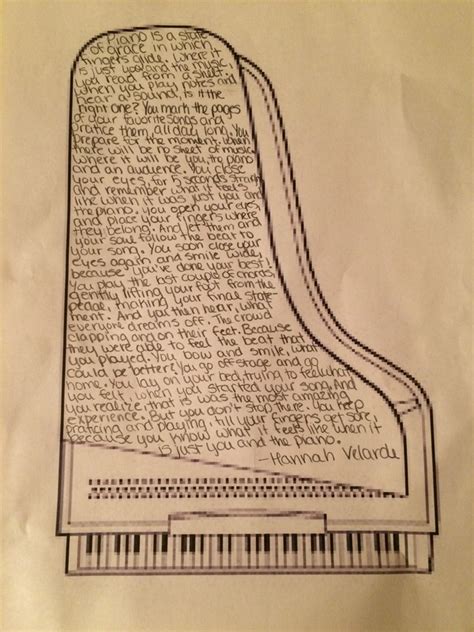 Piano is a state
of grace in which
fingers glide. Where it
is just you and the music
you read from a sheet.
When you play notes and
hear a sound, is it the
right one? You mark the pages
of your favorite songs and
pratice them, all day long. You
prepare for the moment. When
there will be no sheet of music
where it will be you, the piano
and an audience. You close
your eyes, for 5 seconds straight
and remember what it feels
like when it was just you and
the piano. You open your eyes,
and place your fingers where
they belong. And let them and
your soul follow the beat to
your song. You soon close your
eyes again and smile wide,
because you've done your best!
You play the last couple of chords,
gently lifting your foot from the
pedal, training your final state-
ment. And you then hear, what
everyone dreams off. The crowd
clapping and on their feet. Because
they were able to feel the beat that
you played. You bow and smile, what
could be better? You go offstage and go
home. You lay on your bed, trying to feel what
you felt, when you started your song. And
you realize that is was the most amazing
experience. But you don't stop there. You keep
praticing and playing, till your fingers get sore,
because you know what it feels like when it
is just you and the piano.
-Hannah Velarde